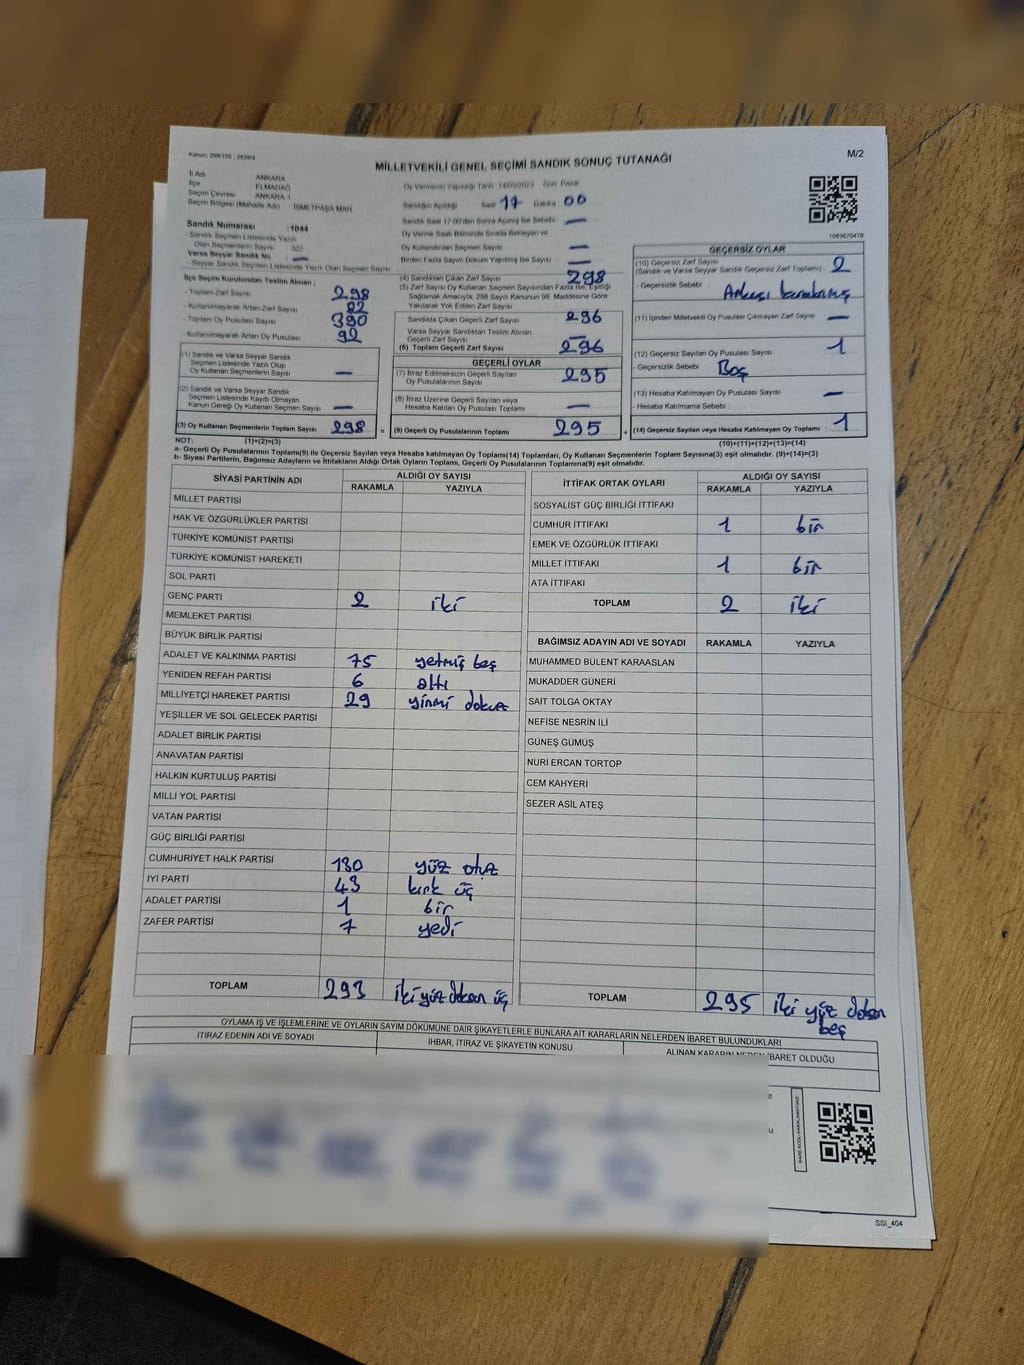 Kanun: 298/105 , 2839/4
M/2
MİLLETVEKİLİ GENEL SEÇİMİ SANDIK SONUÇ TUTANAĞI
İl Adı ANKARA
İlçe ELMADAĞ
Seçim Çevresi ANKARA-1
Seçim Bölgesi (Mahalle Adı) : İSMETPAŞA MAH
Sandık Numarası :1044
- Sandık Seçmen Listesinde Yazılı
Olan Seçmenlerin Sayısı : 322
Varsa Seyyar Sandık No —
- Seyyar Sandık Seçmen Listesinde Yazılı Olan Seçmen Sayısı
Oy Vermenin Yapıldığı Tarih 14/05/2023 Gün Pazar
Sandığın Açıldığı Saat 17 Dakika 00
Sandık Saat 17:00'den Sonra Açılmış İse Sebebi —
Oy Verme Saati Bitiminde Sırada Bekleyen ve
Oy Kullandırılan Seçmen Sayısı —
Birden Fazla Sayım Döküm Yapılmış İse Sayısı —
1083670478
İlçe Seçim Kurulundan Teslim Alınan ;
- Toplam Zarf Sayısı 298
- Kullanılmayarak Artan Zarf Sayısı 92
- Toplam Oy Pusulası Sayısı 390
- Kullanılmayarak Artan Oy Pusulası 92
(1) Sandık ve Varsa Seyyar Sandık
Seçmen Listesinde Yazılı Olup
Oy Kullanan Seçmenlerin Sayısı —
(2) Sandık ve Varsa Seyyar Sandık
Seçmen Listesinde Kaydı Olmayan
Kanun Gereği Oy Kullanan Seçmen Sayısı —
(3) Oy Kullanan Seçmenlerin Toplam Sayısı 298 =
(4) Sandıktan Çıkan Zarf Sayısı 298
(5) Zarf Sayısı Oy Kullanan Seçmen Sayısından Fazla İse, Eşitliği
Sağlamak Amacıyla, 298 Sayılı Kanunun 98. Maddesine Göre
Yakılarak Yok Edilen Zarf Sayısı
Sandıkta Çıkan Geçerli Zarf Sayısı 296
Varsa Seyyar Sandıktan Teslim Alınan
Geçerli Zarf Sayısı —
(6) Toplam Geçerli Zarf Sayısı 296
GEÇERLİ OYLAR
(7) İtiraz Edilmeksizin Geçerli Sayılan
Oy Pusulalarının Sayısı 295
(8) İtiraz Üzerine Geçerli Sayılan veya
Hesaba Katılan Oy Pusulası Toplamı —
(9) Geçerli Oy Pusulalarının Toplamı 295 +
GEÇERSİZ OYLAR
(10) Geçersiz Zarf Sayısı 2
(Sandık ve Varsa Seyyar Sandık Geçersiz Zarf Toplamı)
- Geçersizlik Sebebi :
(11) İçinden Milletvekili Oy Pusulası Çıkmayan Zarf Sayısı —
(12) Geçersiz Sayılan Oy Pusulası Sayısı 1
- Geçersizlik Sebebi Boş
(13) Hesaba Katılmayan Oy Pusulası Sayısı —
- Hesaba Katılmama Sebebi :
(14) Geçersiz Sayılan veya Hesaba Katılmayan Oy Toplamı : 1
NOT: (1)+(2)=(3)
(10)+(11)+(12)+(13)=(14)
a- Geçerli Oy Pusulalarının Toplamı(9) ile Geçersiz Sayılan veya Hesaba katılmayan Oy Toplamı(14) Toplamları, Oy Kullanan Seçmenlerin Toplam Sayısına(3) eşit olmalıdır. (9)+(14)=(3)
b- Siyasi Partilerin, Bağımsız Adayların ve İttifakların Aldığı Ortak Oyların Toplamı, Geçerli Oy Pusulalarının Toplamına(9) eşit olmalıdır.
SİYASİ PARTİNİN ADI ALDIĞI OY SAYISI
RAKAMLA YAZIYLA
MİLLET PARTİSİ
HAK VE ÖZGÜRLÜKLER PARTİSİ
TÜRKİYE KOMÜNİST PARTİSİ
TÜRKİYE KOMÜNİST HAREKETİ
SOL PARTİ
GENÇ PARTİ 2 iki
MEMLEKET PARTİSİ
BÜYÜK BİRLİK PARTİSİ
ADALET VE KALKINMA PARTİSİ 75 yetmiş beş
YENİDEN REFAH PARTİSİ 6 altı
MİLLİYETÇİ HAREKET PARTİSİ 29 yirmi dokuz
YEŞİLLER VE SOL GELECEK PARTİSİ
ADALET BİRLİK PARTİSİ
ANAVATAN PARTİSİ
HALKIN KURTULUŞ PARTİSİ
MİLLİ YOL PARTİSİ
VATAN PARTİSİ
GÜÇ BİRLİĞİ PARTİSİ
CUMHURİYET HALK PARTİSİ 130 yüz otuz
İYİ PARTİ 43 kırk üç
ADALET PARTİSİ 1 bir
ZAFER PARTİSİ 7 yedi
TOPLAM 293 iki yüz doksan üç
İTTİFAK ORTAK OYLARI ALDIĞI OY SAYISI
RAKAMLA YAZIYLA
SOSYALİST GÜÇ BİRLİĞİ İTTİFAKI
CUMHUR İTTİFAKI 1 bir
EMEK VE ÖZGÜRLÜK İTTİFAKI
MİLLET İTTİFAKI 1 bir
ATA İTTİFAKI
TOPLAM 2 iki
BAĞIMSIZ ADAYIN ADI VE SOYADI RAKAMLA YAZIYLA
MUHAMMED BÜLENT KARAASLAN
MUKADDER GÜNERİ
SAİT TOLGA OKTAY
NEFİSE NESRİN İLİ
GÜNEŞ GÜMÜŞ
NURİ ERCAN TORTOP
CEM KAHYERİ
SEZER ASİL ATEŞ
TOPLAM 295 iki yüz doksan
beş
OYLAMA İŞ VE İŞLEMLERİNE VE OYLARIN SAYIM DÖKÜMÜNE DAİR ŞİKAYETLERLE BUNLARA AİT KARARLARIN NELERDEN İBARET BULUNDUKLARI
İTİRAZ EDENİN ADI VE SOYADI İHBAR, İTİRAZ VE ŞİKAYETİN KONUSU ALINAN KARARIN NEDEN İBARET OLDUĞU
SSİ_404